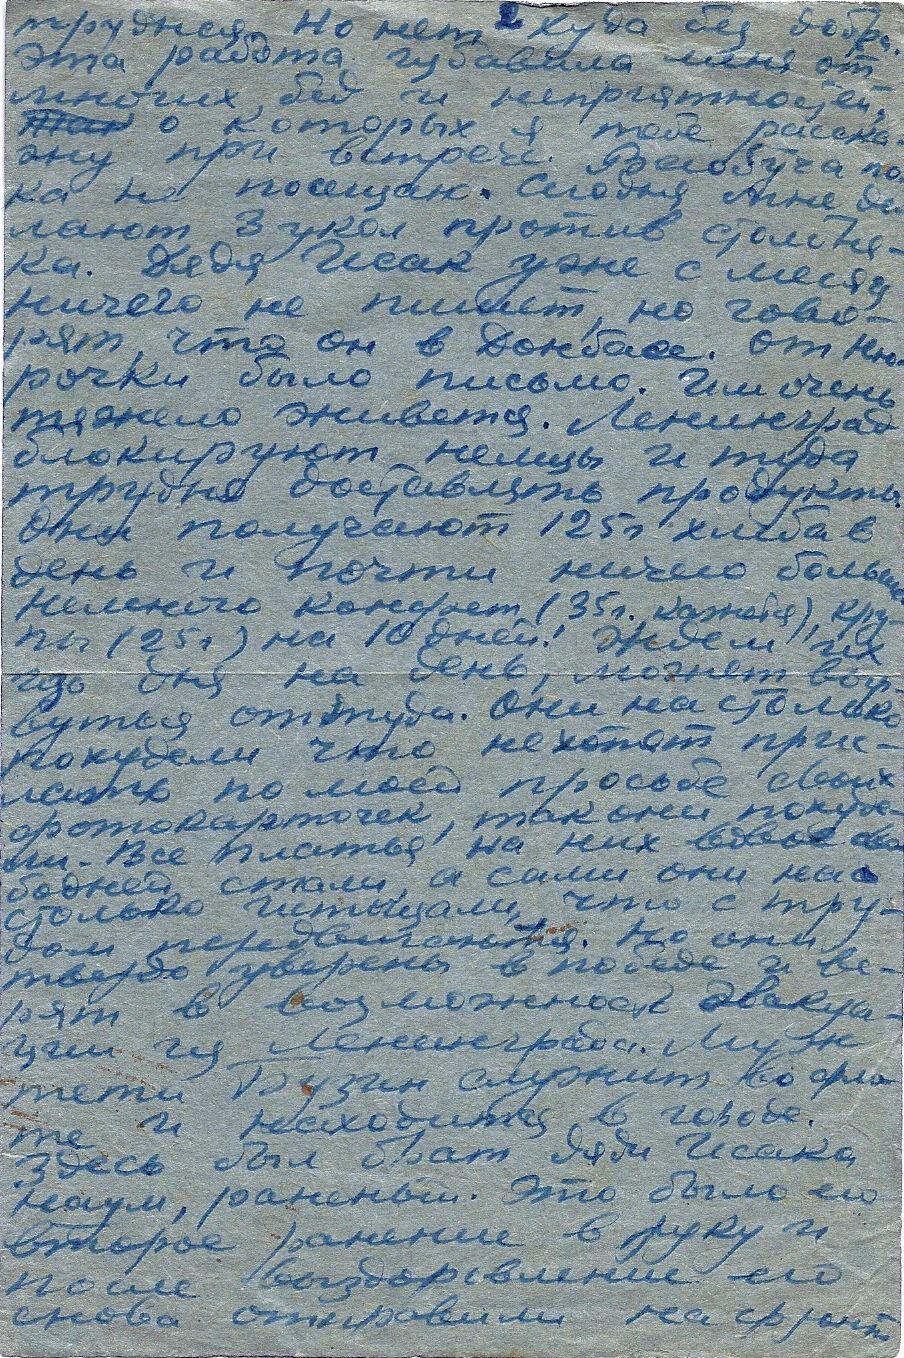 2
трудная. Но нет худа без добра.
Эта работа избавила меня от
многих бед и неприятностей,
о которых я тебе расска-
жу при встрече. Всеобуча по-
ка не посещаю. Сегодня мне де-
лают 3 укол против столбня-
ка. Дядя Исак уже с месяц
ничего не пишет, но гово-
рят, что он в Донбасе. От Ню-
рочки было письмо. Им очень
тяжело живется. Ленинград
блокируют немцы и туда
трудно доставлять продукты.
Они получают 125г хлеба в
день и почти ничего больше
немного конфет (35г. каждая), кру-
пы (25г) на 10 дней! Ждем их
изо дня на день, может вор-
вутся оттуда. Они настолько
похудели что не хотят прис-
лать по моей просьбе своих
фотокарточек, так они похуде-
ли. Все платья на них вдвое сво
бодней стали, а сами они на
столько истощали, что с тру-
дом передвигаются. Но они
твердо уверены в победе и ве-
рят в возможность эвакуа-
ции из Ленинграда. Муж
тети Бузин служит во фло
те и находится в городе.
Здесь был брат дяди Исака
Наум, раненый. Это было его
второе ранение в руку и
после выздоровление его
снова отправили на фронт